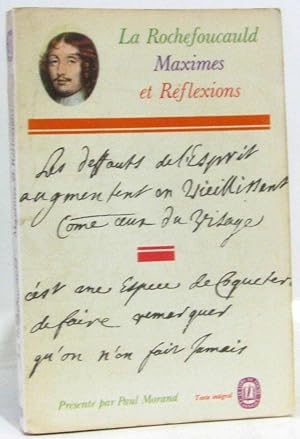 La Rochefoucauld
Maximes
et Réflexions
Les deffauts de l'Esprit
augmentent en Vieillissent
Come ceux du Visage
c'est une Espece de Coqueter
de faire remarquer
qu'on n'en fait Jamais
Présenté par Paul Morand
Texte intégral